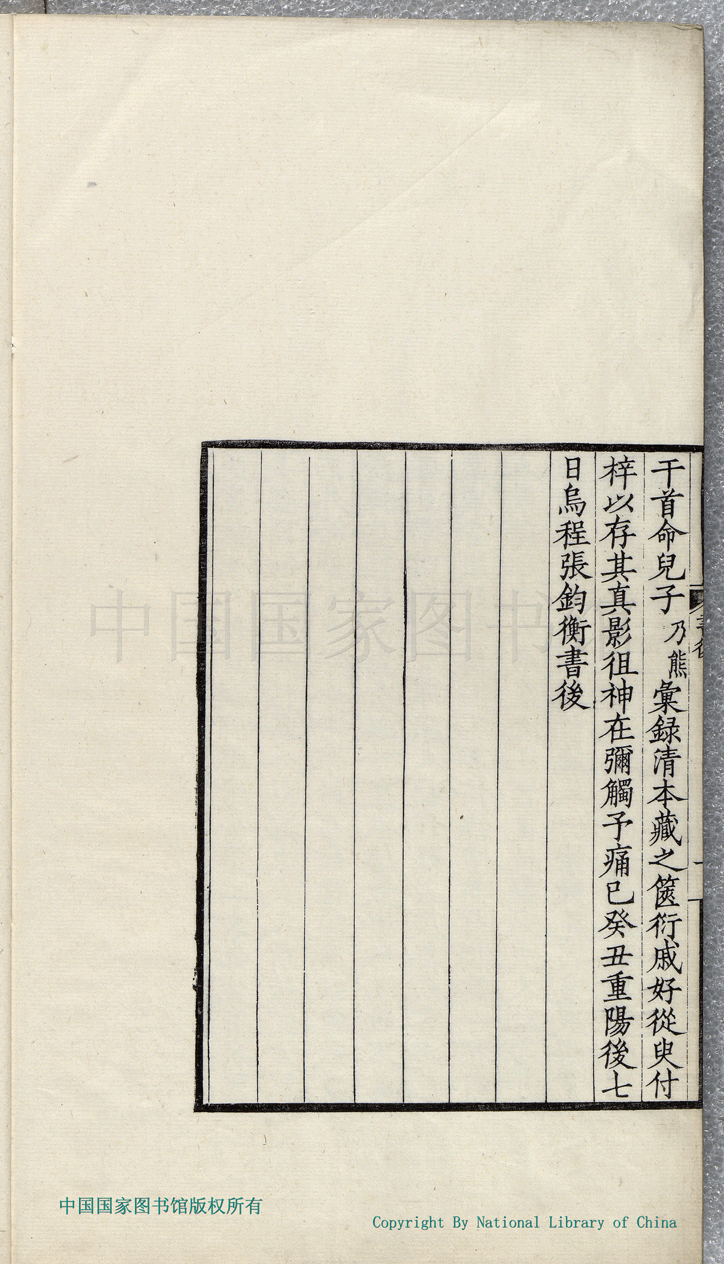 干首命兒子乃熊彙録清本藏之篋衍戚好從臾付
梓以存其真影徂神在彌觸予痛已癸丑重陽後七
日烏程張鈞衡書後
中国国家图书
中国国家图书馆版权所有
Copyright By National Library of China